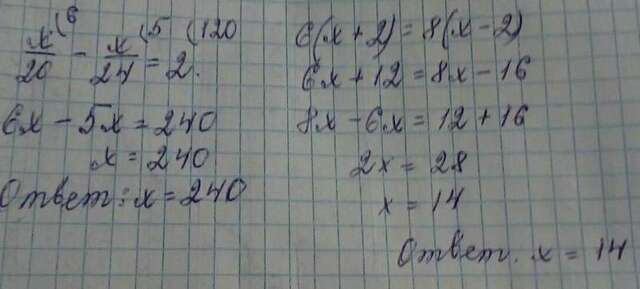 x/20 (6 - x/24 (5 = 2 (120.
6x - 5x = 240
x = 240
Ответ: x = 240
6(x + 2) = 8(x - 2)
6x + 12 = 8x - 16
8x - 6x = 12 + 16
2x = 28
x = 14
Ответ. x = 14